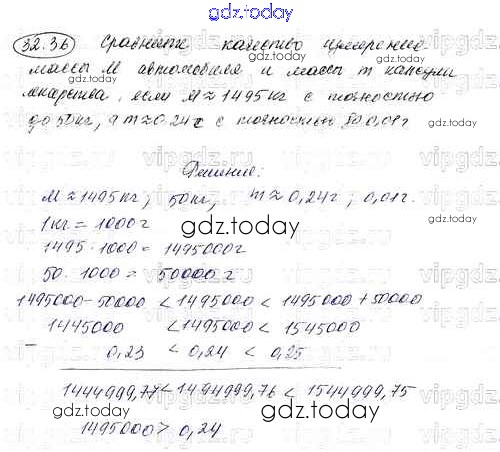 gdz.today
32.36 Сравните качество измерений
массы М автомобиля и массы m капсулы
лекарства, если М ≈ 1495 кг с точностью
до 50 кг, а m ≈ 0,24 г с точностью до 0,01 г
Решение:
М ≈ 1495 кг; 50 кг, m ≈ 0,24 г; 0,01 г.
1 кг = 1000 г
1495 · 1000 = 1495000 г
50 · 1000 = 50000 г
1495000 - 50000 < 1495000 < 1495000 + 50000
1445000 < 1495000 < 1545000
- 0,23 < 0,24 < 0,25
1444999,77 < 1494999,76 < 1544999,75
1495000 > 0,24
gdz.today